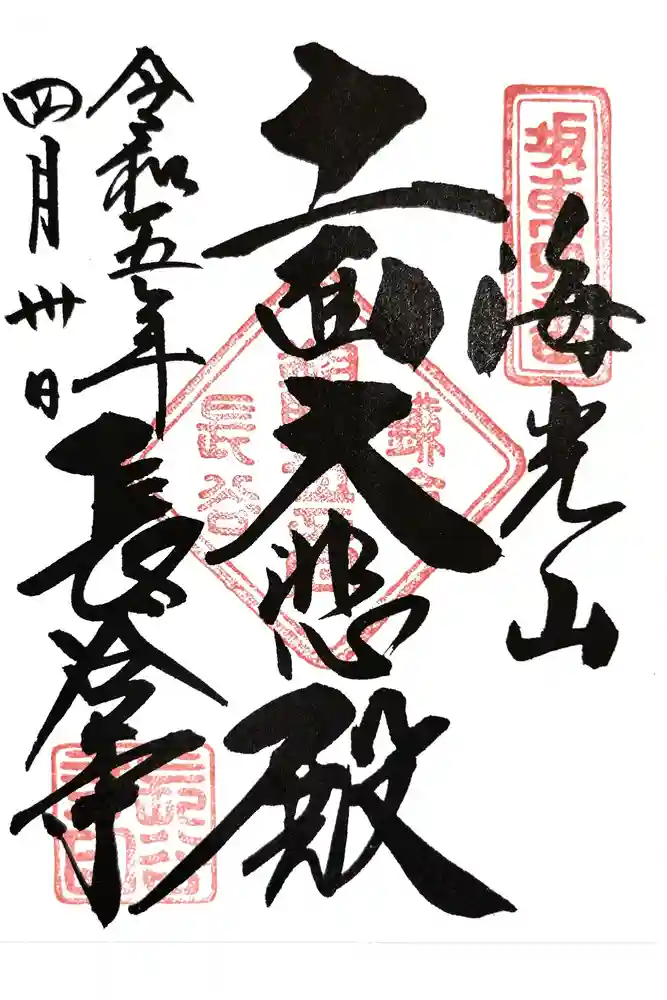 坂東
海光山
十一面大悲殿
鎌倉
長谷
令和五年
四月卅日
長谷寺
長谷寺印